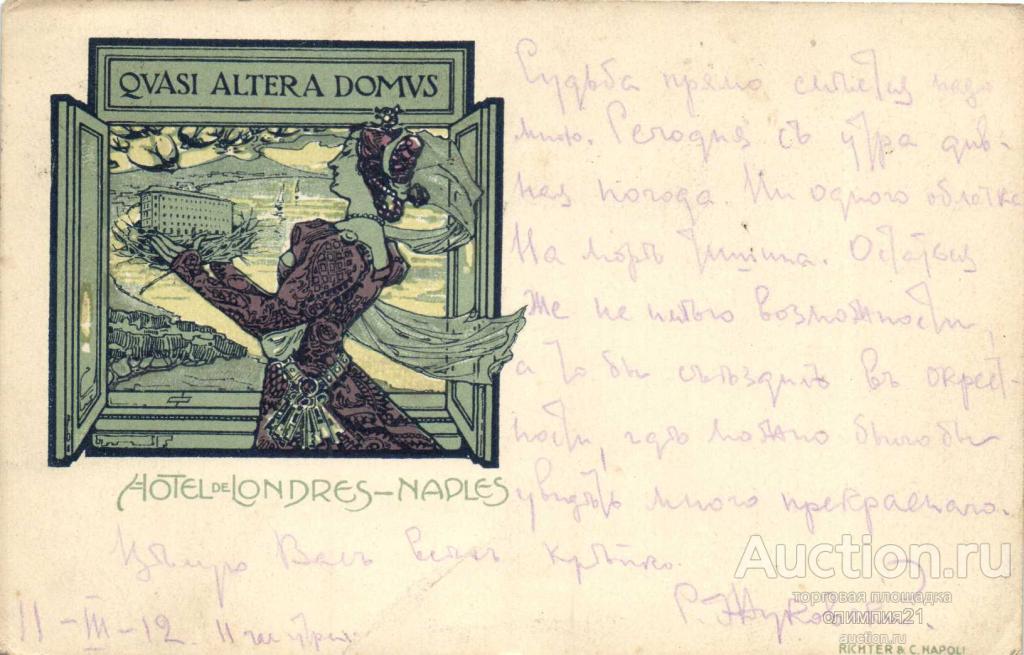 QVASI ALTERA DOMVS
HOTEL DE LONDRES – NAPLES
Судьба прямо смѣется надо
мною. Сегодня съ утра див-
ная погода. Ни одного облачка
На морѣ тишина. Остаться
же не имѣю возможности,
а то бы съѣздилъ въ окрест-
ности, гдѣ можно было бы
увидѣть много прекраснаго.
Цѣлую Васъ всѣхъ крѣпко.
С. Жуковскій.
11–III–12. 11 час утра
Auction.ru
торговая площадка
олимпия21
auction.ru
RICHTER & C. NAPOLI